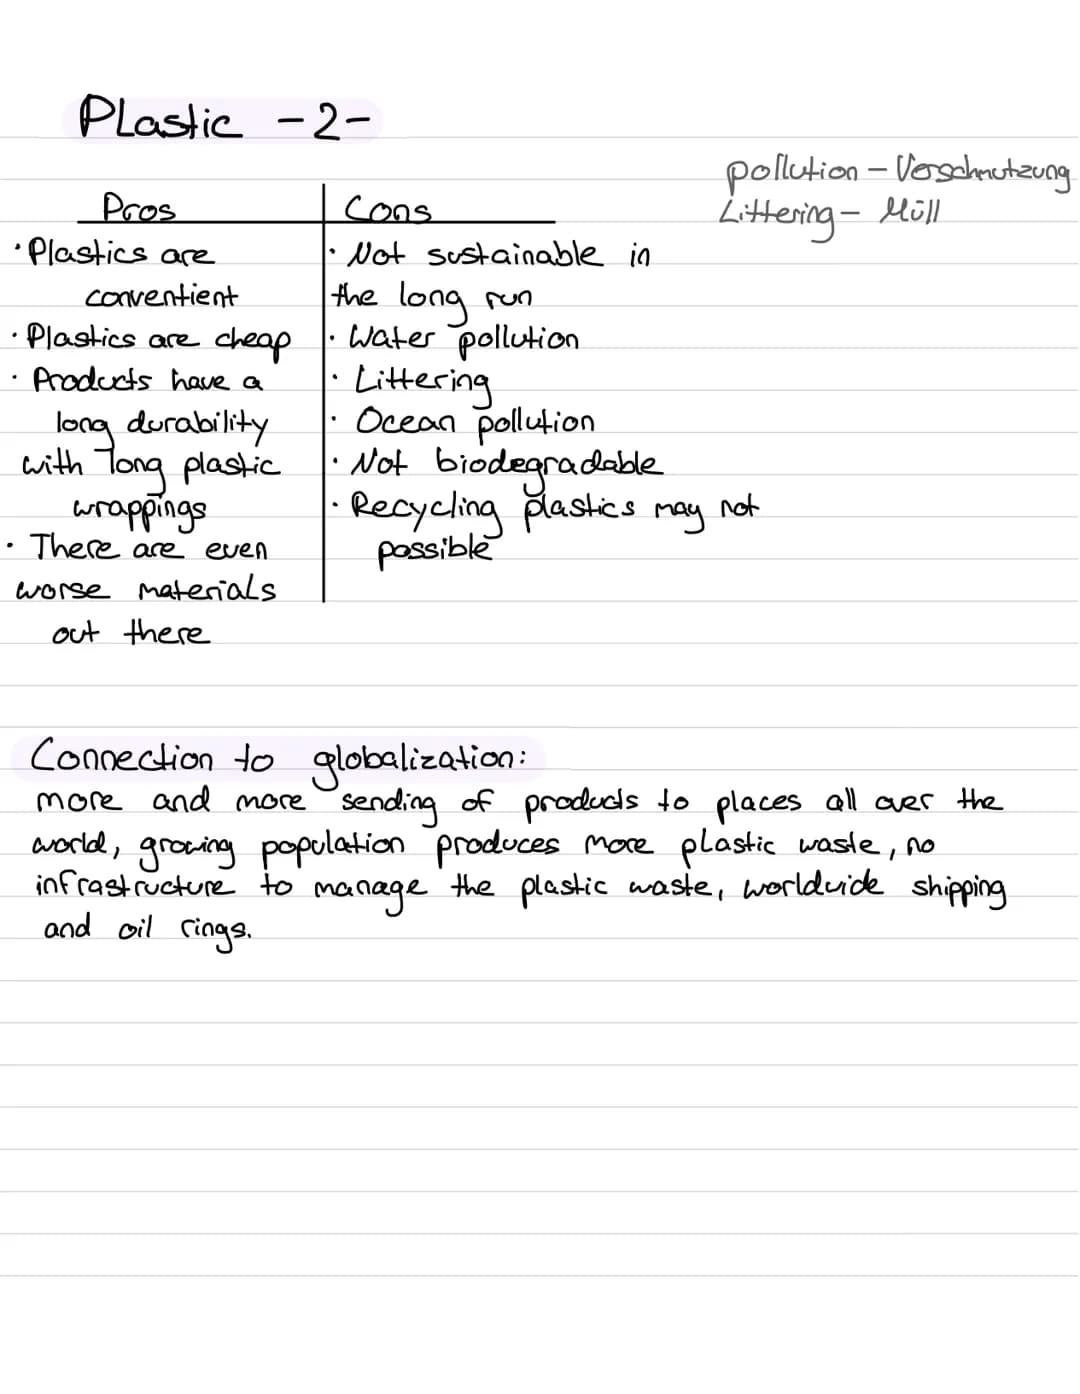 Plastic -2-
pollution – Verschmutzung
Littering – Müll
Pros
• Plastics are
conventient
• Plastics are cheap
• Products have a
long durability
with long plastic
wrappings
• There are even
worse materials
out there
Cons
• Not sustainable in
the long run
• Water pollution
• Littering
• Ocean pollution
• Not biodegradable
• Recycling plastics may not
possible
Connection to globalization:
more and more sending of products to places all over the
world, growing population produces more plastic waste, no
infrastructure to manage the plastic waste, worldwide shipping
and oil rings.